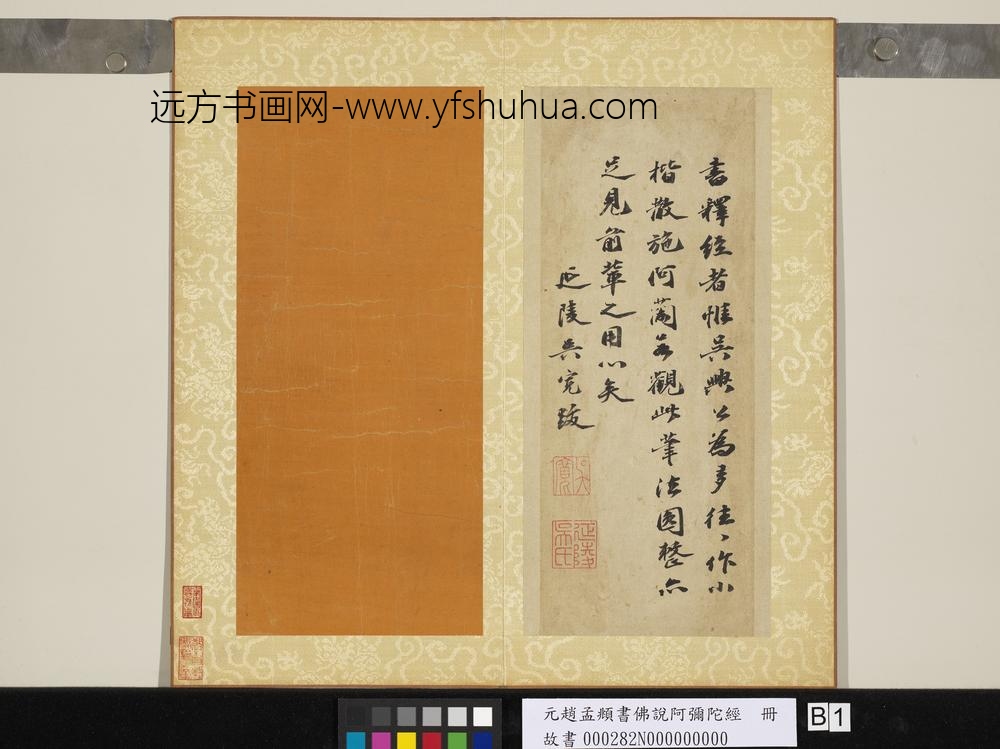 远方书画网-www.yfshuhua.com
書釋經者惟吳興公為多往丶作小
楷散施何蘭若觀此筆法圓整亦
足見前輩之用心矣
延陵吳寬跋
延陵吳氏
元趙孟頫書佛說阿彌陀經 冊
故書 000282N000000000
B 1